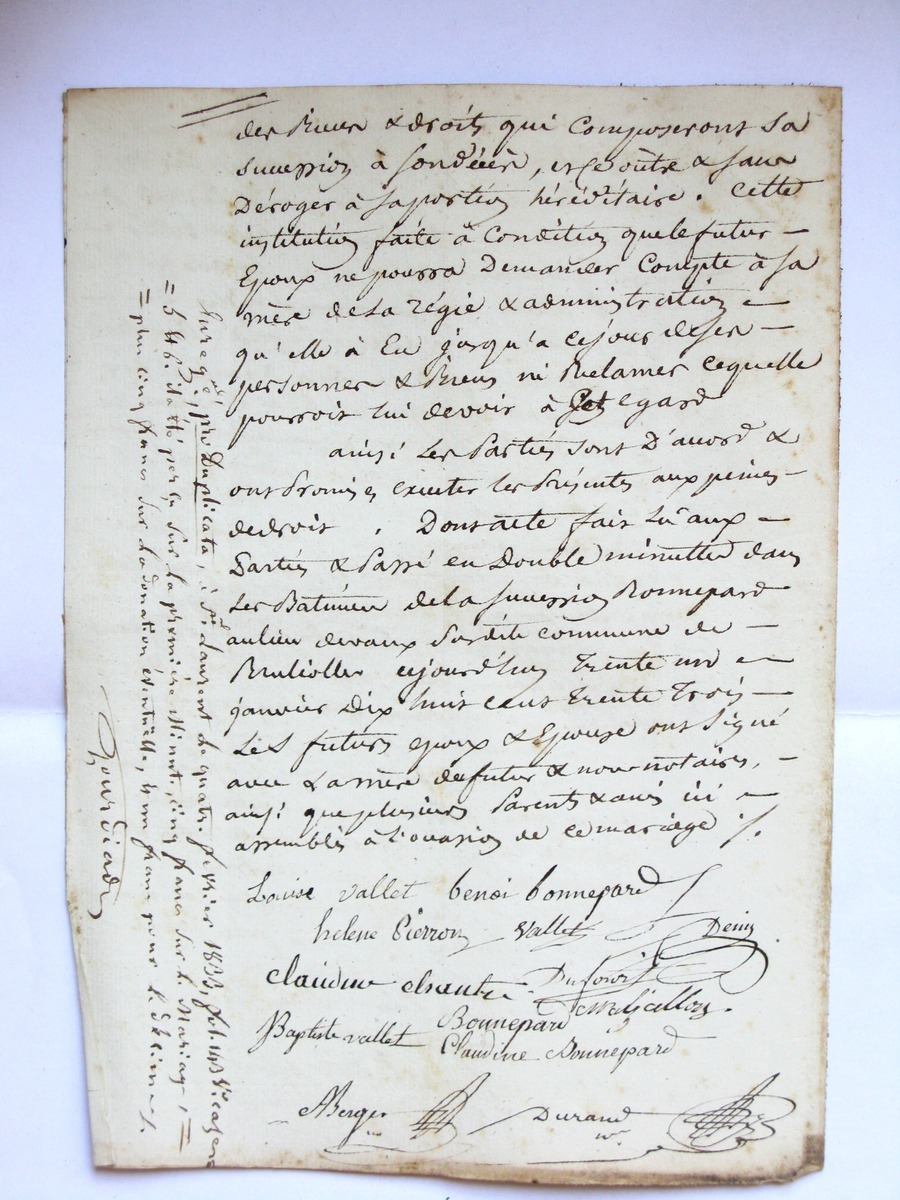 des Biens & droits qui Composeront Sa
Succession à Son décès, et ce outre & Sans
Déroger à Sa portion héréditaire. Cette
institution faite à Condition que le futur —
Epoux ne pourra Demander Compte à Sa
mère de la Régie & administration —
qu'elle à Eu jusqu'a ce jour de ses —
personnes & Biens ni Réclamer ce qu'elle
pourroit lui devoir à Cet egard
ainsi Les Parties Sont D'accord &
ont Promis exécuter les Présentes aux peines —
de droit. Dont acte fait Lû aux —
Parties & Passé en Double minutte dans
Les Batimens de la Succession Bonnepard
au lieu de vaux Susdite commune de —
Brullolles cejourd'hui trente un —
janvier Dix huit cent trente trois —
Les futurs epoux & Epouse ont Signé
avec La mère du futur & nous notaires, —
ainsi que plusieurs Parents & amis ici —
assemblés à l'occasion de ce mariage ./.
Louise vallet benoi bonnepard
helene Pierron Vallet Denis
Claudine Chantre Dufour
Bonnepard
Baptiste vallet Claudine Bonnepard
Berger Durand
nre
Enregé., pro Duplicata, à St. Laurent Le quatre février 1833,
= 5 f. 46. il a été perçu Sur La première Minute, cinq francs Sur le Mariage, =
= plus cinq francs Sur La donation éventuelle, & un franc pour le décime ./.
Gourdiat